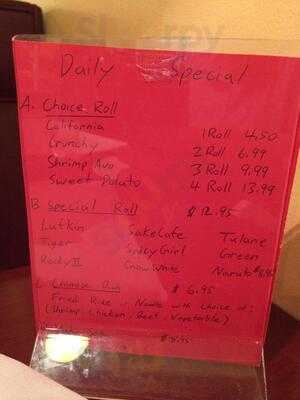 Daily Special
A. Choice Roll
California 1 Roll 4.50
Crunchy 2 Roll 6.99
Shrimp Avo 3 Roll 9.99
Sweet Potato 4 Roll 13.99
B Special Roll $12.95
Lufkin SakeCafe Tulane
Tiger Spicy Girl Green
Rocky II Snow White Naruto $8.95
$6.95
Fried Rice or Noodle with choice of :
(Shrimp, Chicken, Beef, Vegetable)